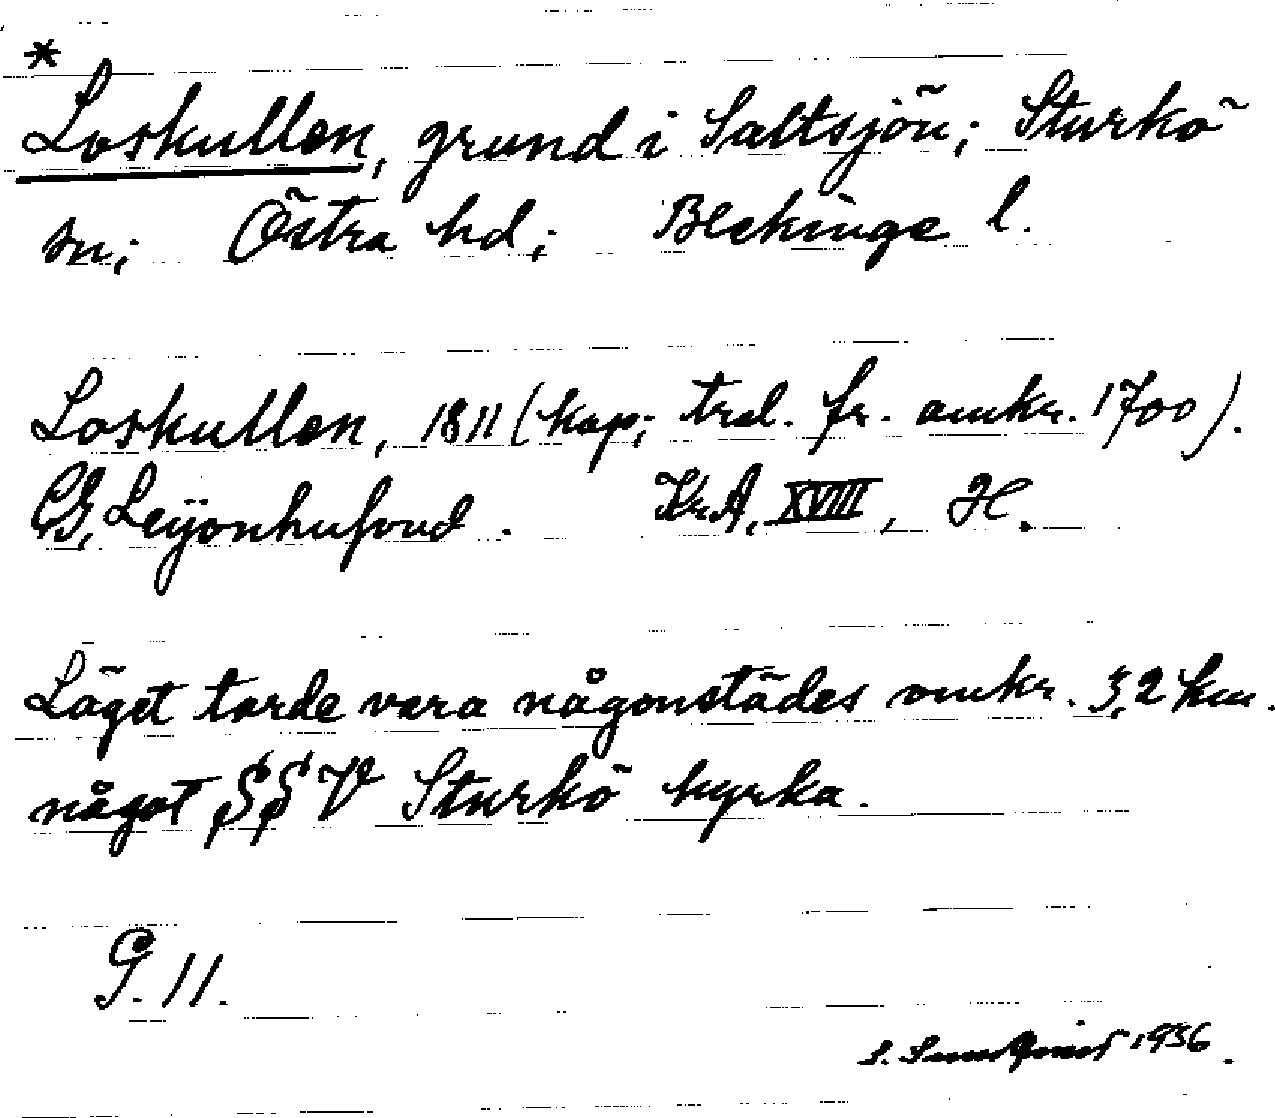 *
Loskullen, grund i Saltsjön; Sturkö
sn; Östra hd; Blekinge l.
Loskullen, 1811 (kop; trol. fr. omkr. 1700).
CG, Leÿonhufvud. Kr.A. XVIII, H.
Läget torde vara någonstädes omkr. 3,2 km.
något SSV Sturkö kyrka.
G. 11.
S. 1936.